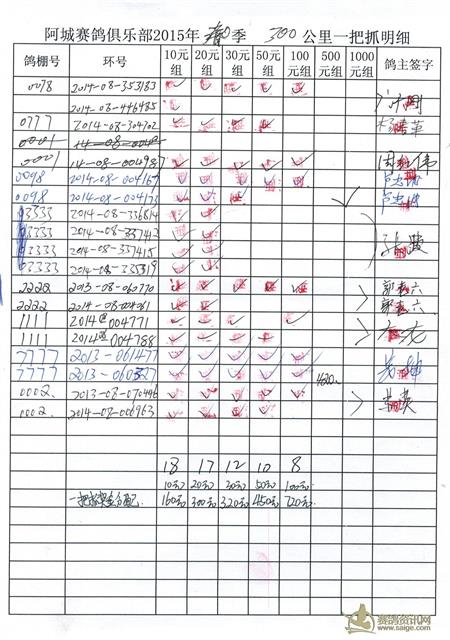 阿城赛鸽俱乐部2015年春季 300公里一把抓明细
鸽棚号 环号 10元组 20元组 30元组 50元组 100元组 500元组 1000元组 鸽主签字
0078 2014-08-353183
2014-08-446485
0777 2014-08-304702
0001
0001 14-08-004987
0098 2014-08-004167
0098 2014-08-004173
03333 2014-08-336814
03333 2014-08-337412
03333 2014-08-337415
03333 2014-08-335319
2222 2013-08-060770
2222 2014-08-004061
1111 2014 004771
1111 2014 004788
7777 2013-061477
7777 2013-060327 420
0002 2013-08-070496
0002 2014-08-006963
18 17 12 10 8
10元 20元 30元 50元 100元
一把抓奖金分配 160元 300元 320元 450元 720元
赛鸽资讯网
www.saige.com